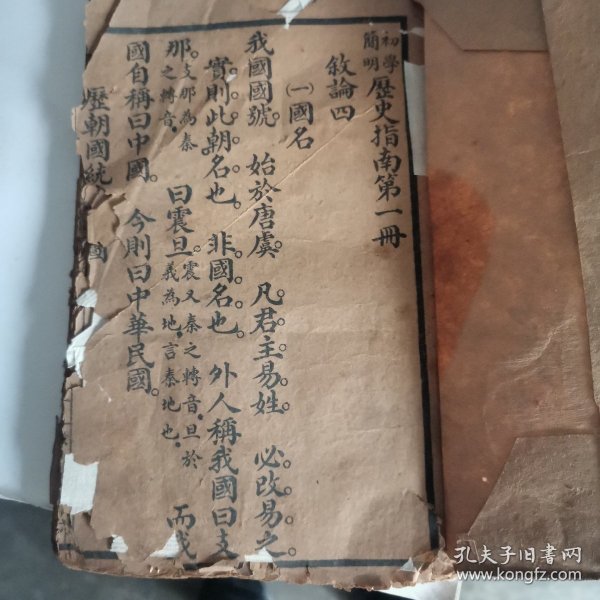 初學簡明歷史指南第一冊
敘論四
㈠國名
我國國號。始於唐虞。凡君主易姓。必改易之。
實則此朝名也。非國名也。外人稱我國曰支
那。支那為秦之轉音。曰震旦。震又秦之轉音。旦於義為地。言秦地也。而我
國自稱曰中國。今則曰中華民國。
歷朝國統
孔夫子旧书网
www.kongfz.com